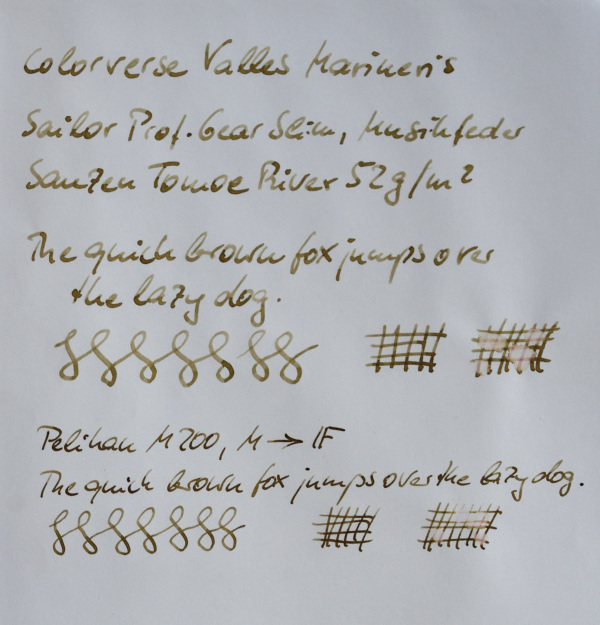 Colorverse Valles Marineris
Sailor Prof. Gear Slim, Musikfeder
Sanzen Tomoe River 52g/m²
The quick brown fox jumps over
the lazy dog.
Pelikan M200, M → IF
The quick brown fox jumps over the lazy dog.